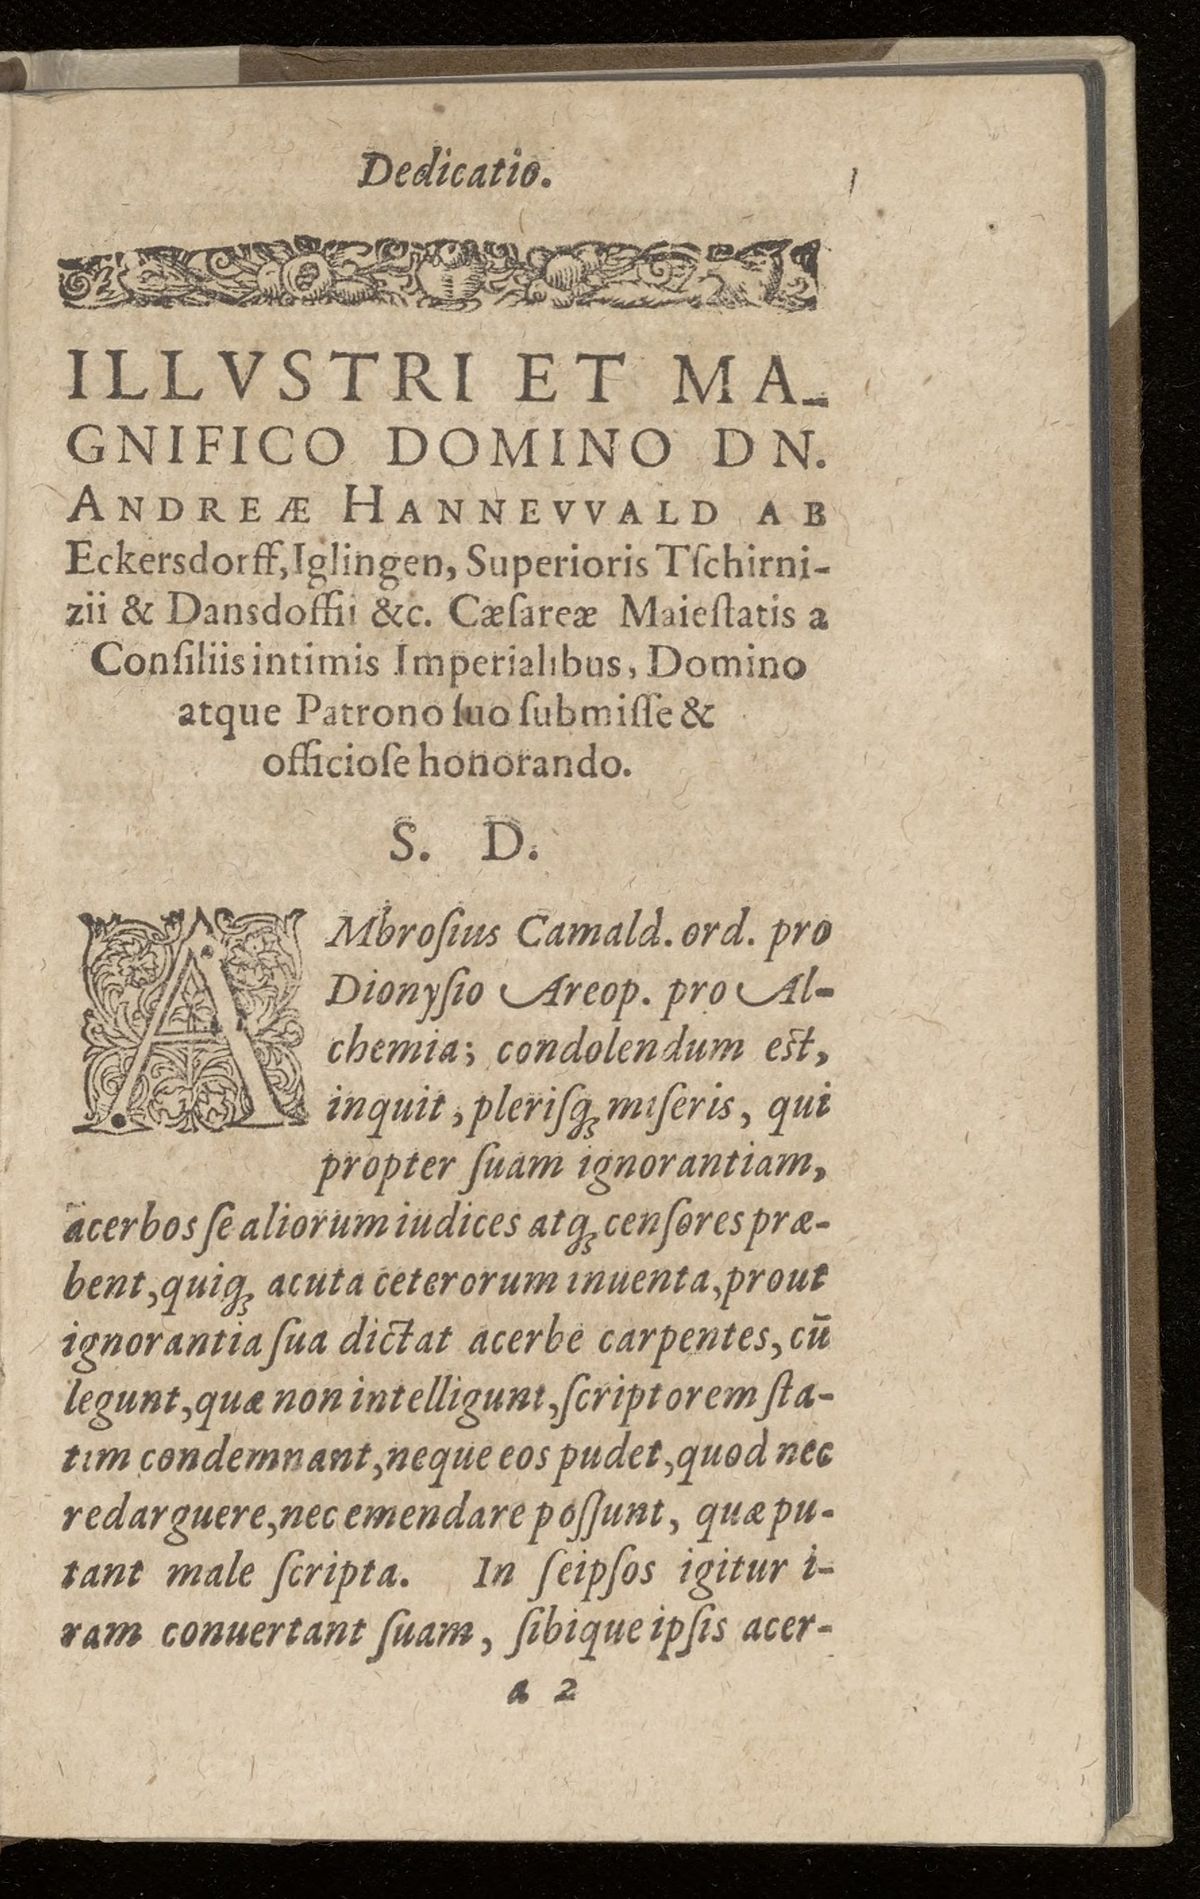 Dedicatio.
1
ILLVSTRI ET MA-
GNIFICO DOMINO DN.
ANDREÆ HANNEVVALD AB
Eckersdorff, Iglingen, Superioris Tſchirni-
zii & Dansdoffii &c. Cæſareæ Maieſtatis a
Conſiliis intimis Imperialibus, Domino
atque Patrono ſuo ſubmiſſe &
officioſe honorando.
S. D.
AMbroſius Camald. ord. pro
Dionyſio Areop. pro Al-
chemia; condolendum eſt,
inquit, pleriſq́ꝫ miſeris, qui
propter ſuam ignorantiam,
acerbos ſe aliorum iudices atq́ꝫ cenſores præ-
bent, quiq́ꝫ acuta ceterorum inuenta, prout
ignorantia ſua dictat acerbe carpentes, cū
legunt, quæ non intelligunt, ſcriptorem ſta-
tim condemnant, neque eos pudet, quod nec
redarguere, nec emendare poſſunt, quæ pu-
tant male ſcripta. In ſeipſos igitur i-
ram conuertant ſuam, ſibique ipſis acer-
a 2